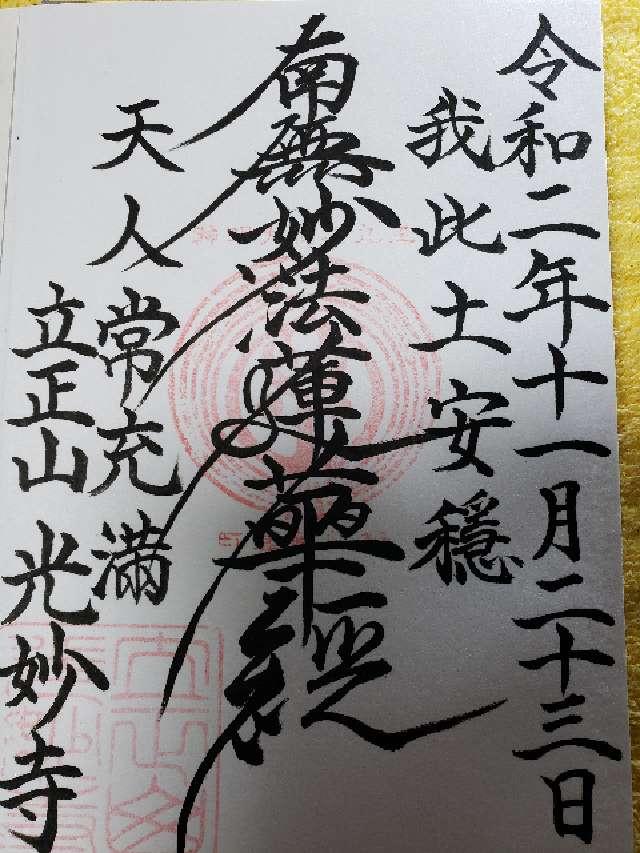 令和二年十一月二十三日
我此土安穏
南無妙法蓮華経
天人常充満
立正山 光妙寺